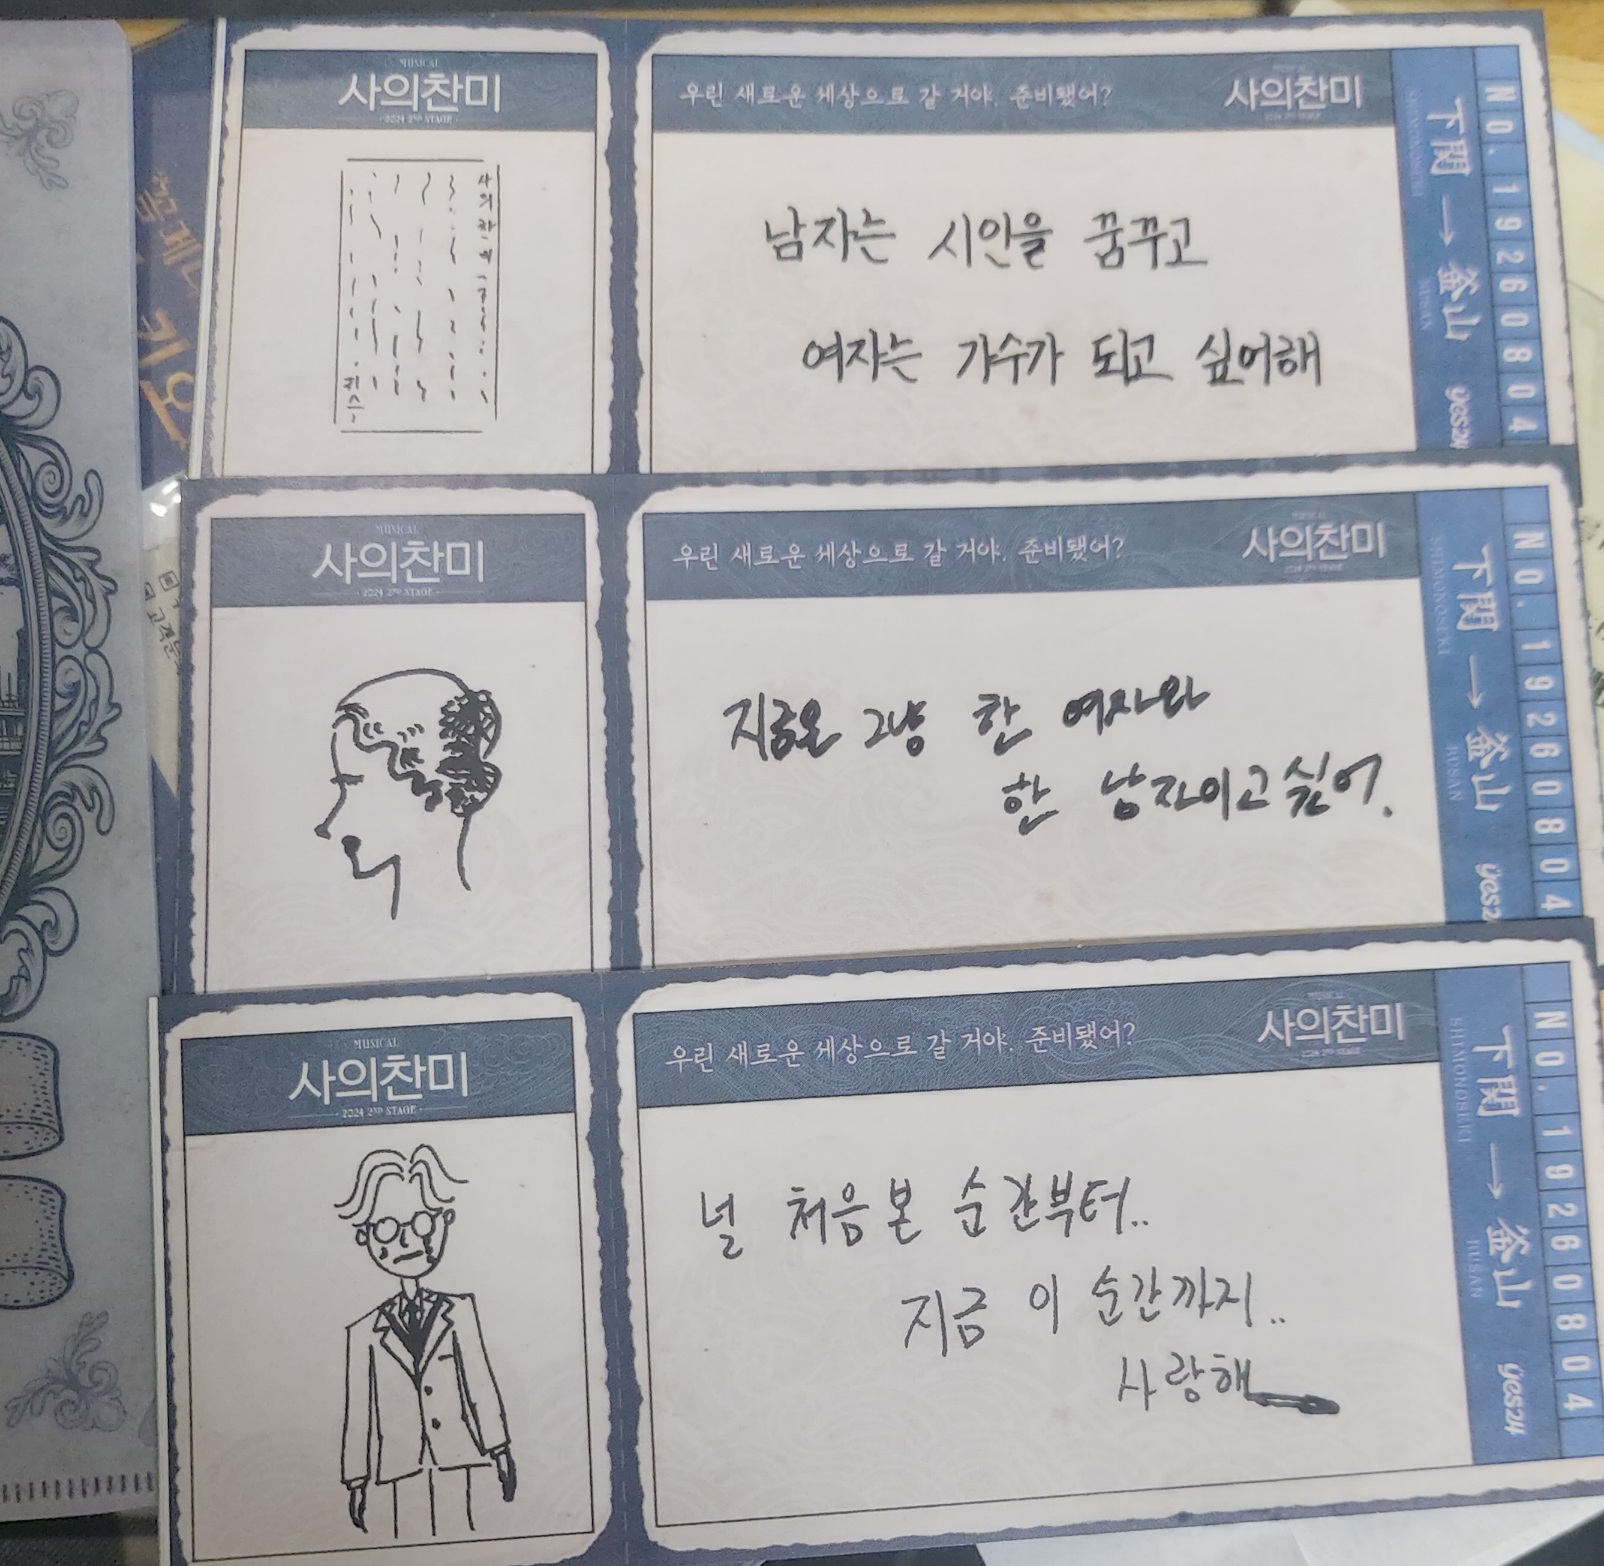 MUSICAL
사의찬미
2024 2ND STAGE
우린 새로운 세상으로 갈 거야. 준비됐어?
사의찬미
남자는 시인을 꿈꾸고
여자는 가수가 되고 싶어해
下関 → 釜山
SHIMONOSEKI
BUSAN
yes24
NO. 19260804
MUSICAL
사의찬미
2024 2ND STAGE
우린 새로운 세상으로 갈 거야. 준비됐어?
사의찬미
2024 2ND STAGE
지금은 그냥 한 여자와
한 남자이고 싶어.
下関 → 釜山
SHIMONOSEKI
BUSAN
yes2
NO. 19260804
MUSICAL
사의찬미
2024 2ND STAGE
우린 새로운 세상으로 갈 거야. 준비됐어?
사의찬미
널 처음 본 순간부터..
지금 이 순간까지..
사랑해
下関 → 釜山
SHIMONOSEKI
BUSAN
yes24
NO. 19260804